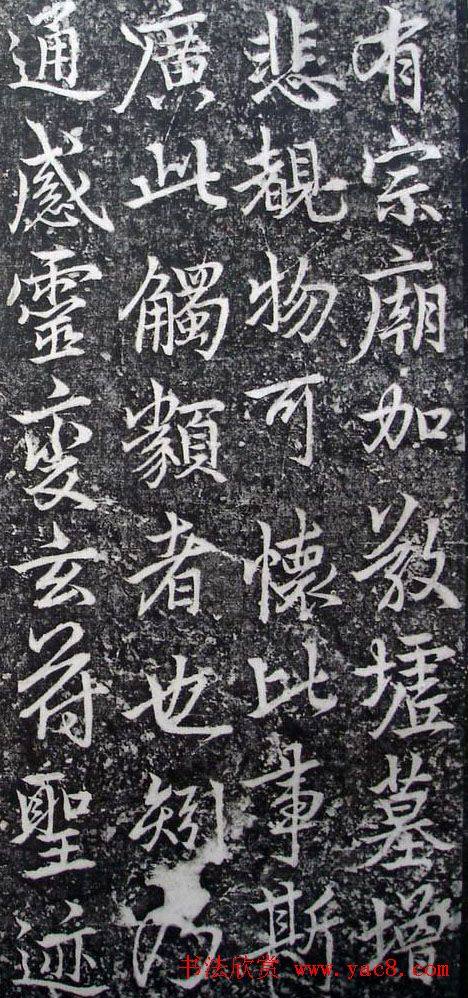 有宗廟加敬墟墓增
悲覩物可懷此事斯
廣此觸類者也矧乃
通感靈變玄符聖迹
书法欣赏 www.yac8.com